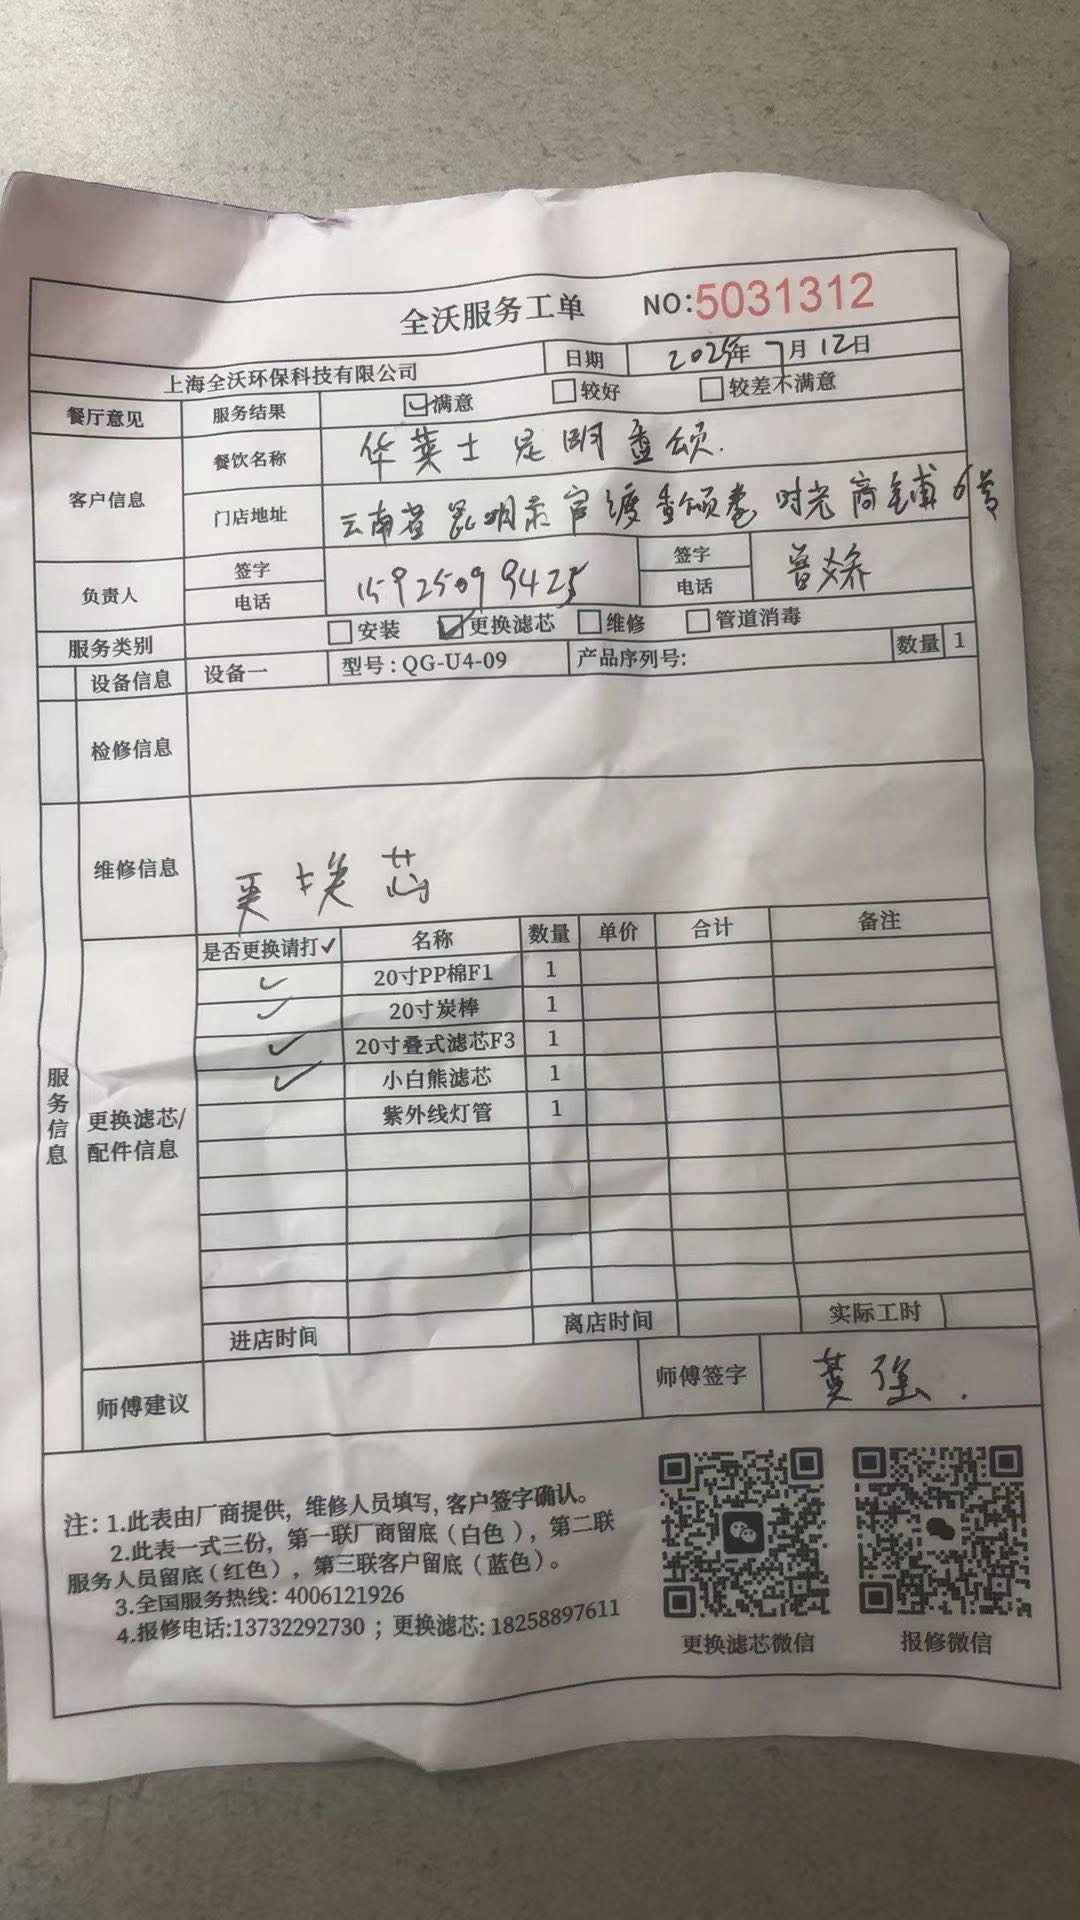 全沃服务工单 NO:5031312
上海全沃环保科技有限公司 日期 2025年 7月 12日
餐厅意见 服务结果 满意 较好 较差不满意
客户信息 餐饮名称 华莱士昆明香颂.
门店地址 云南省昆明市官渡香颂巷时光商铺6号
负责人 签字 电话 15925099425 签字 电话 曾
服务类别 安装 更换滤芯 维修 管道消毒
设备信息 设备一 型号:QG-U4-09 产品序列号: 数量 1
检修信息
维修信息 更换芯
服务信息
更换滤芯/配件信息
是否更换请打✓ 名称 数量 单价 合计 备注
✓ 20寸PP棉F1 1
✓ 20寸炭棒 1
✓ 20寸叠式滤芯F3 1
✓ 小白熊滤芯 1
紫外线灯管 1
进店时间 离店时间 实际工时
师傅建议 师傅签字 黄强.
注: 1.此表由厂商提供, 维修人员填写, 客户签字确认。
2.此表一式三份, 第一联厂商留底(白色), 第二联
服务人员留底(红色), 第三联客户留底(蓝色)。
3.全国服务热线: 4006121926
4.报修电话:13732292730 ; 更换滤芯: 18258897611
更换滤芯微信 报修微信